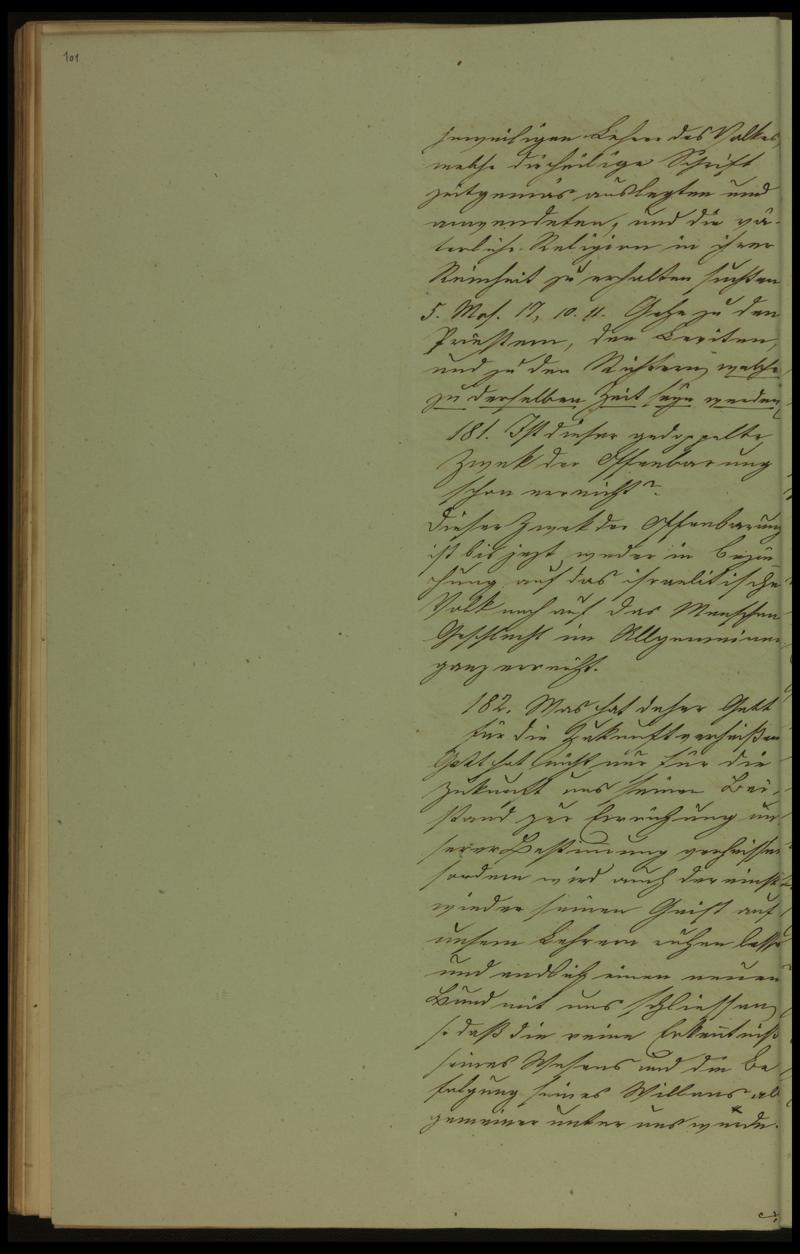 101
jeweiligen Lehrer des Volkes,
welche die heilige Schrift
zeitgemäs auslegten und
anwendeten, und die vä-
terliche Religion in ihrer
Reinheit zu erhalten suchten
5. Mos. 17, 10. 11. Gehe zu den
Priestern, den Leviten,
und zu den Richtern, welche
zu derselben Zeit seyn werden,
181. Ist dieser gedoppelte
Zwek der Offenbarung
schon erreicht?
Dieser Zwek der Offenbarung
ist bis jezt weder in Bezie
hung auf das israelitische
Volk noch auf das Menschen
Geschlecht im Allgemeinen
ganz erreicht.
182. Was hat daher Gott
für die Zukunft verheißen
Gott hat nicht nur für die
Zukunft uns seinen Bei-
stand zur Erreichung un
serer Bestimmung verheissen
sondern wird auch dereinst
wieder seinen Geist auf
unsern Lehrern ruhen lasse
und endlich einen neuen
Bund mit uns schliessen,
so daß die reine Erkentniß
seines Wesens und die Be
folgung seines Willens al
gemeiner unter uns würde.